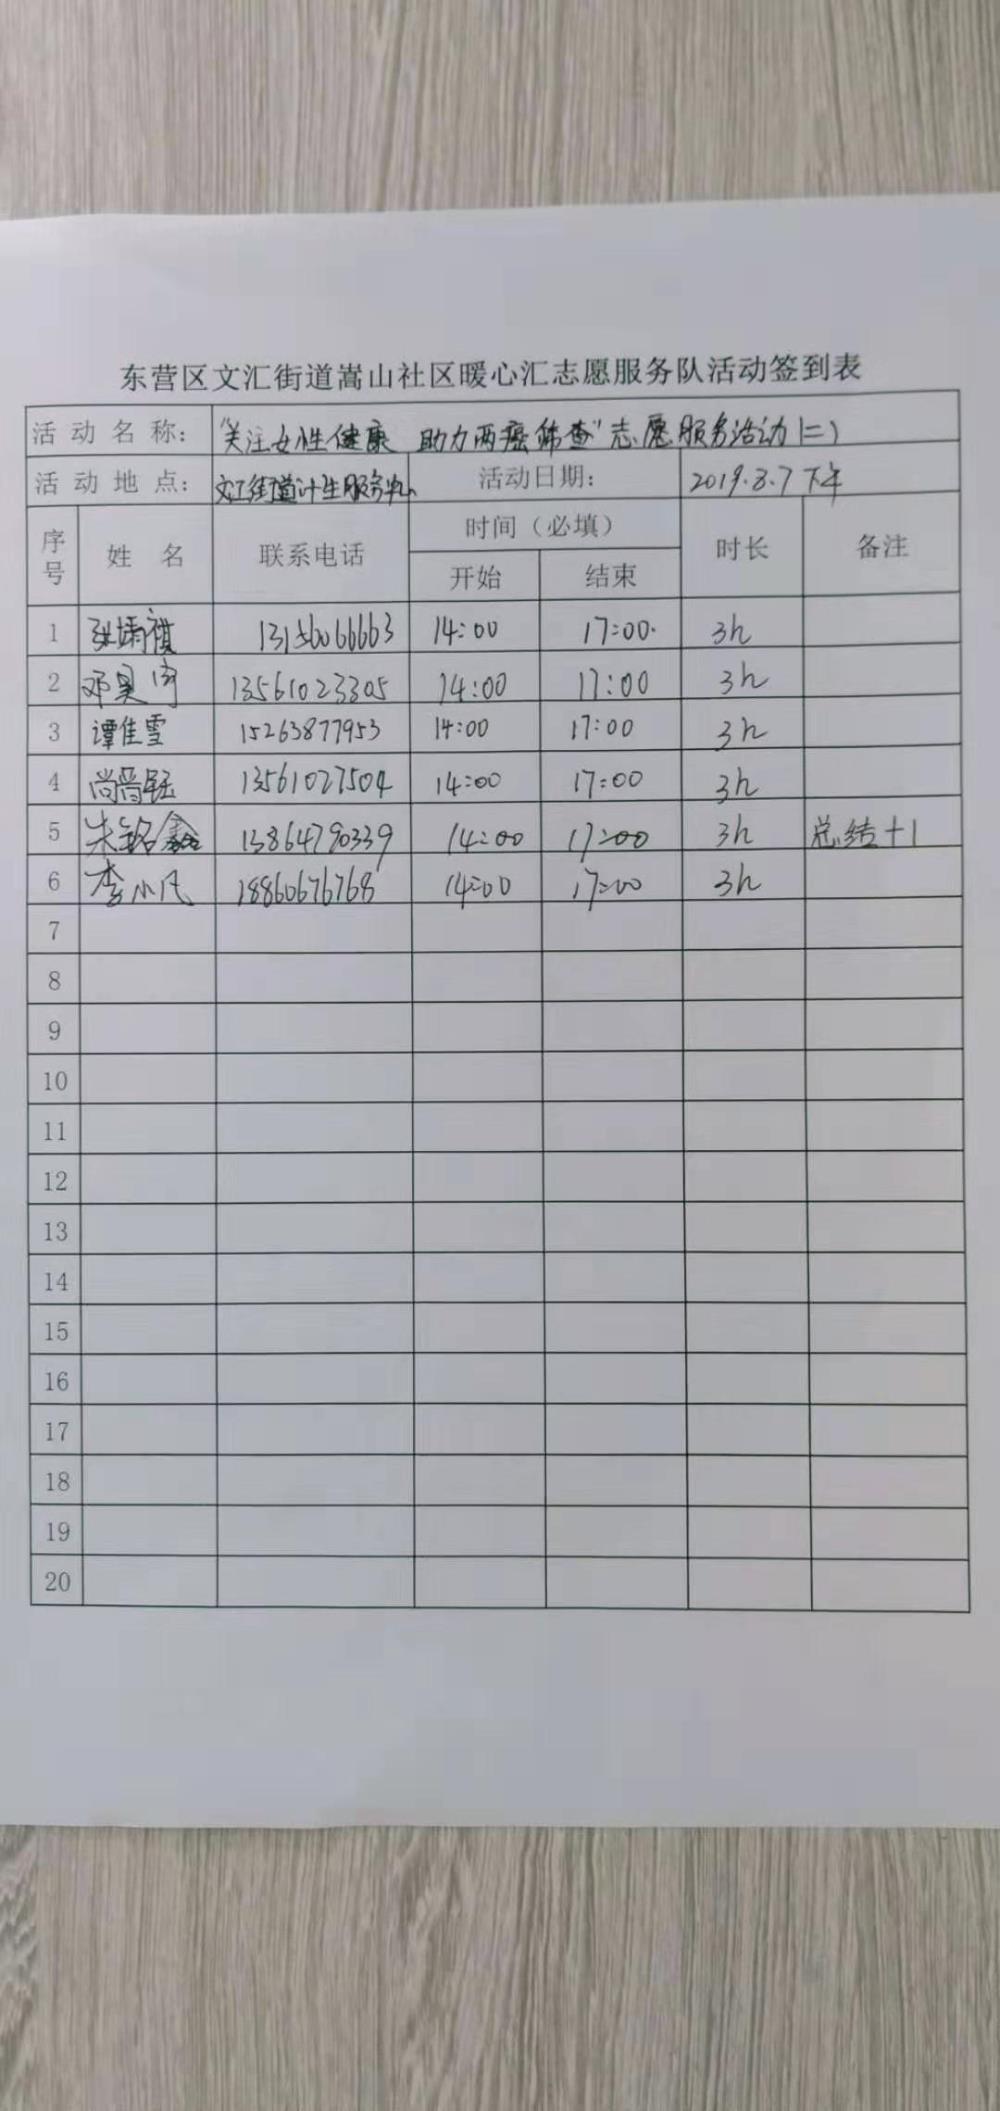 东营区文汇街道嵩山社区暖心汇志愿服务队活动签到表
活动名称： "关注女性健康 助力两癌筛查"志愿服务活动(二)
活动地点： 文汇街道计生服务中心 活动日期： 2019.8.7下午
序号 姓名 联系电话 时间（必填） 时长 备注
开始 结束
1 张靖祺 13156066663 14:00 17:00. 3h
2 邓昊 13561023305 14:00 17:00 3h
3 谭佳雪 15263877953 14:00 17:00 3h
4 尚晋钰 13561027504 14:00 17:00 3h
5 朱铭鑫 13864790339 14:00 17:00 3h 总结+1
6 李小凡 18860676768 14:00 17:00 3h
7
8
9
10
11
12
13
14
15
16
17
18
19
20